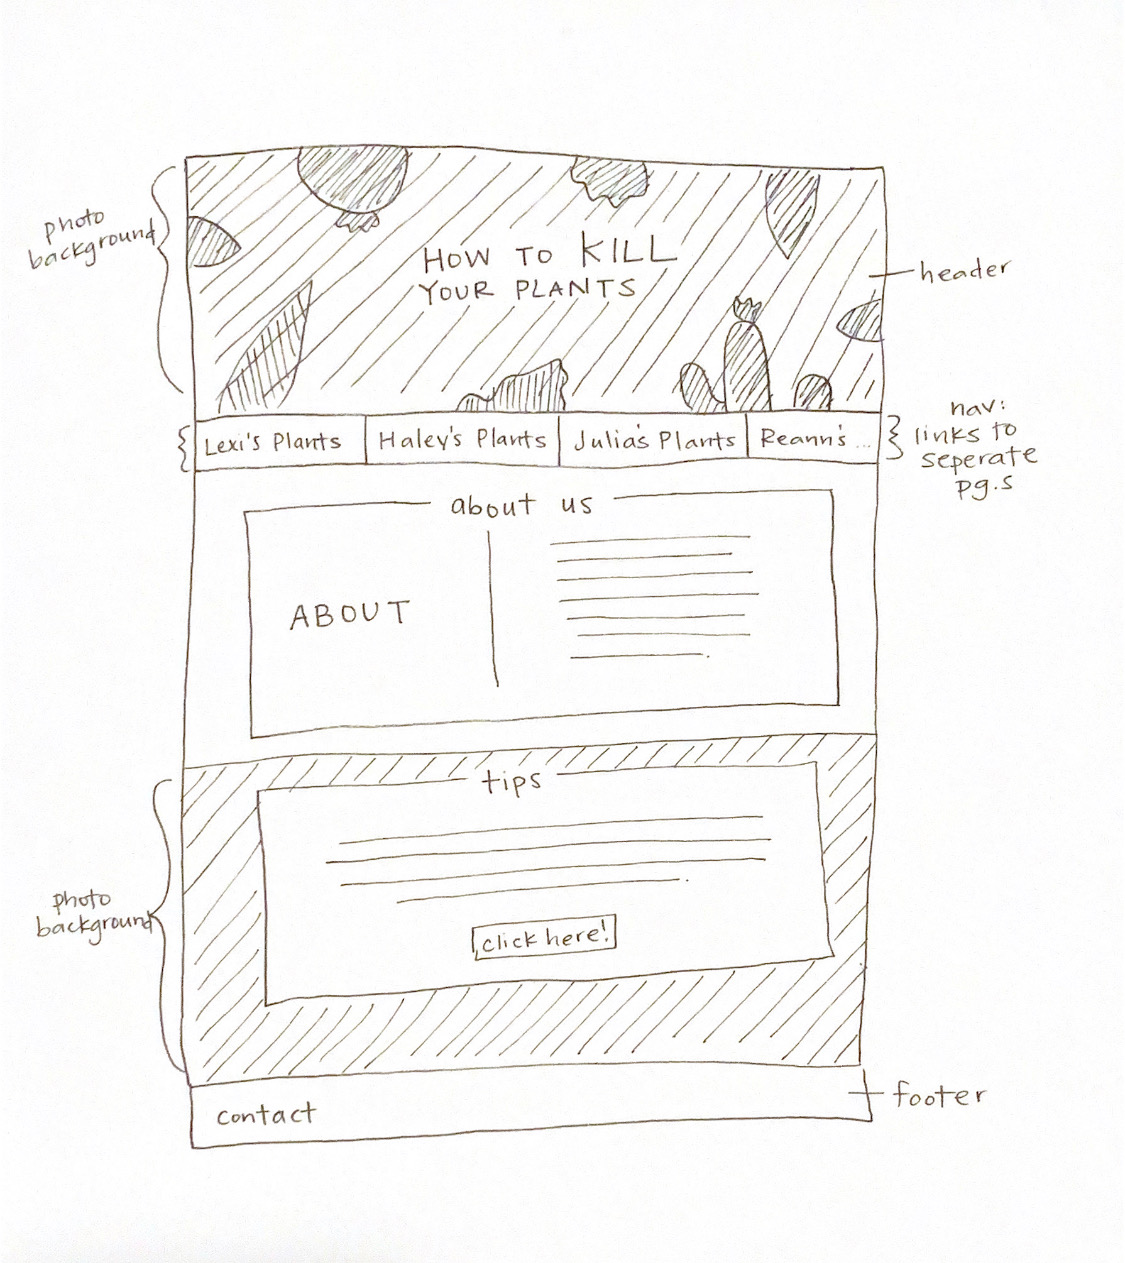 photo
background
HOW TO KILL
YOUR PLANTS
header
Lexi's Plants
Haley's Plants
Julia's Plants
Reann's ...
nav:
links to
seperate
pg.s
about us
ABOUT
tips
click here!
photo
background
contact
footer